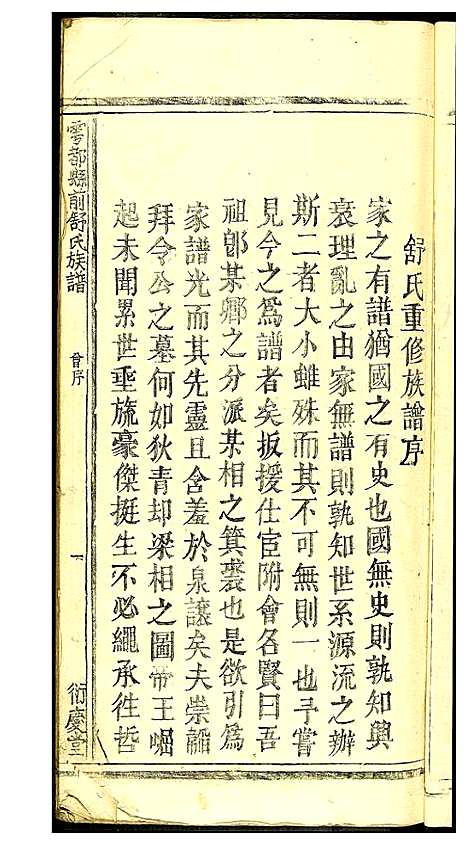 舒氏重修族譜序
家之有譜猶國之有史也國無史則孰知興
衰理亂之由家無譜則孰知世系源流之辦
斯二者大小雖殊而其不可無則一也予嘗
見今之為譜者矣扳援仕宦附會名賢曰吾
祖郎某鄉之分派某相之箕裘也是欲引為
家譜光而其先靈且含羞於泉讓矣夫崇韜
拜令公之墓何如狄青却梁相之圖帝王崛
起未聞累世垂旒豪傑挺生不必繩承徃哲
雩都縣前舒氏族譜
曾序
一
衍慶堂